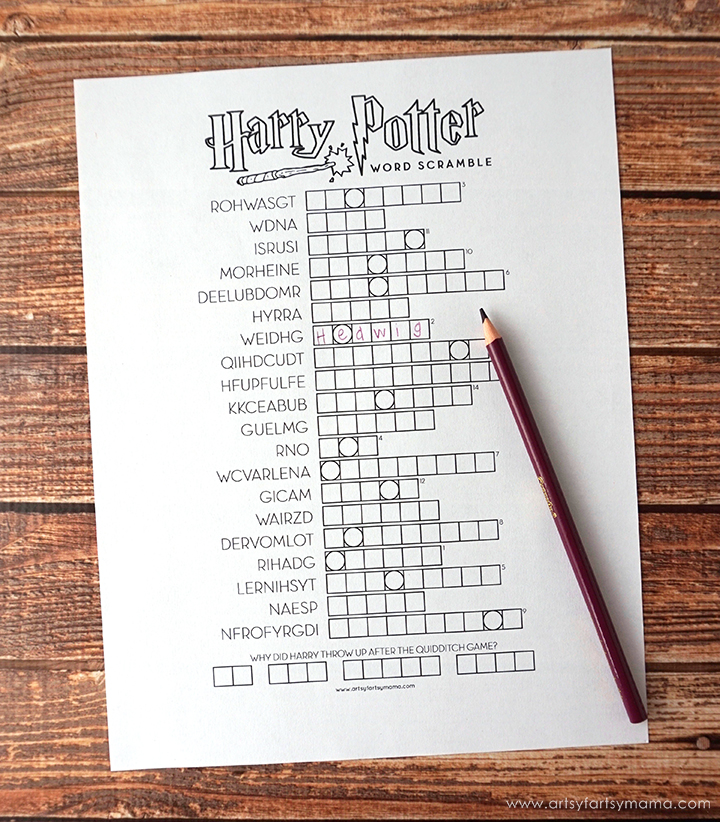 Harry Potter
WORD SCRAMBLE
ROHWASGT 3
WDNA
ISRUSI 11
MORHEINE 10
DEELUBDOMR 6
HYRRA
WEIDHG Hedwig 2
QIIHDCUDT
HFUPFULFE
KKCEABUB 14
GUELMG
RNO 4
WCVARLENA 7
GICAM 12
WAIRZD
DERVOMLOT 8
RIHADG 1
LERNIHSYT 5
NAESP
NFROFYRGDI 9
WHY DID HARRY THROW UP AFTER THE QUIDDITCH GAME?
www.artsyfartsymama.com
www.artsyfartsymama.com